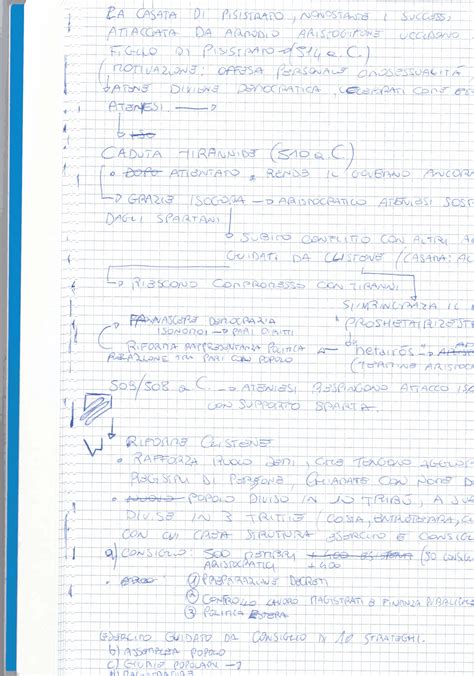 LA CASATA DI PISISTRATO, NONOSTANTE I SUCCESSI
ATTACCATA DA ARMODIO ARISTOGITONE UCCIDONO
FIGLIO DI PISISTRATO (514 a.C.)
MOTIVAZIONE: OFFESA PERSONALE OMOSESSUALITÀ
ATENE DIVIENE DEMOCRATICA, CELEBRATI COME
ATENIESI.
CADUTA TIRANNIDE (510 a.C.)
DOPO ATTENTATO RENDE IL GOVERNO ANCORA
GRAZIE ISOGORA → ARISTOCRATICO ATENIESE SOST
DAGLI SPARTANI
SUBITO CONFLITTO CON ALTRI
GUIDATI DA CLISTENE (CASATA: AL
RIESCONO COMPROMESSO CON TIRANNI
SI RIBILANCIA IL
NASCERE DEMOCRAZIA
PROSHETAIRIZESTH
ISONOMOI → PARI DIRITTI
RIFORMA RAPPRESENTANZA POLITICA ← "hetairos" →
RELAZIONE TRA PARI CON POPOLO
(TERMINE ARISTOC
509/508 a C. → ATENIESI RESPINGONO ATTACCO ISO
CON SUPPORTO SPARTA.
RIFORME CLISTENE
• RAFFORZA RUOLO DEMI, CHE TENGONO
REGISTRI DI PERSONE, CHIAMATE CON NOME D
• POPOLO DIVISO IN 10 TRIBÙ, A SU
DIVISE IN 3 TRITTIE (COSTA, ENTROTERRA, C
CON CUI CREA STRUTTURA ESERCITO E CONSIGLI
a) CONSIGLIO: 500 MEMBRI (50 CONSIGL
ARISTOCRATICI +400
① PREPARAZIONE DECRETI
② CONTROLLO LAVORO MAGISTRATI E FINANZA PUBBLICA
③ POLITICA ESTERA
ESERCITO GUIDATO DA CONSIGLIO DI 10 STRATEGHI.
b) ASSEMBLEA POPOLO
c) GIURIE POPOLARI →
d) MAGISTRATURE